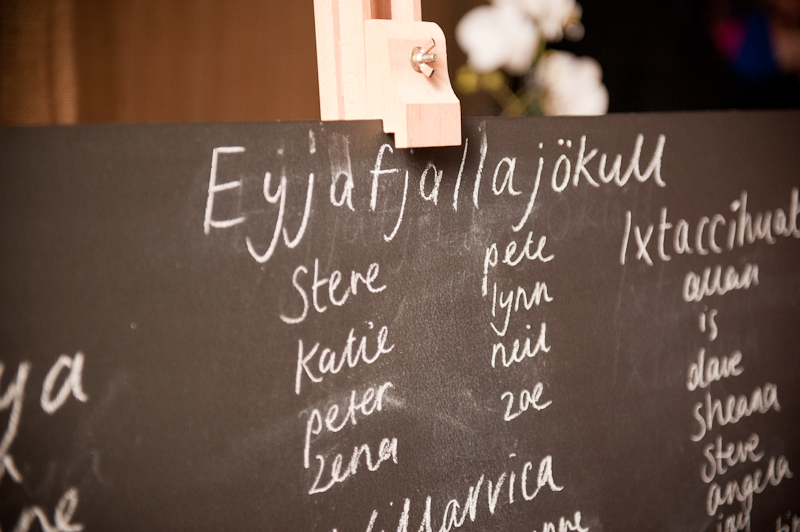 Eyjafjallajökull
Steve
Katie
peter
zena
pete
lynn
neil
zoe
Villarrica
Ixtaccihuat
allan
is
dave
sheana
Steve
angela